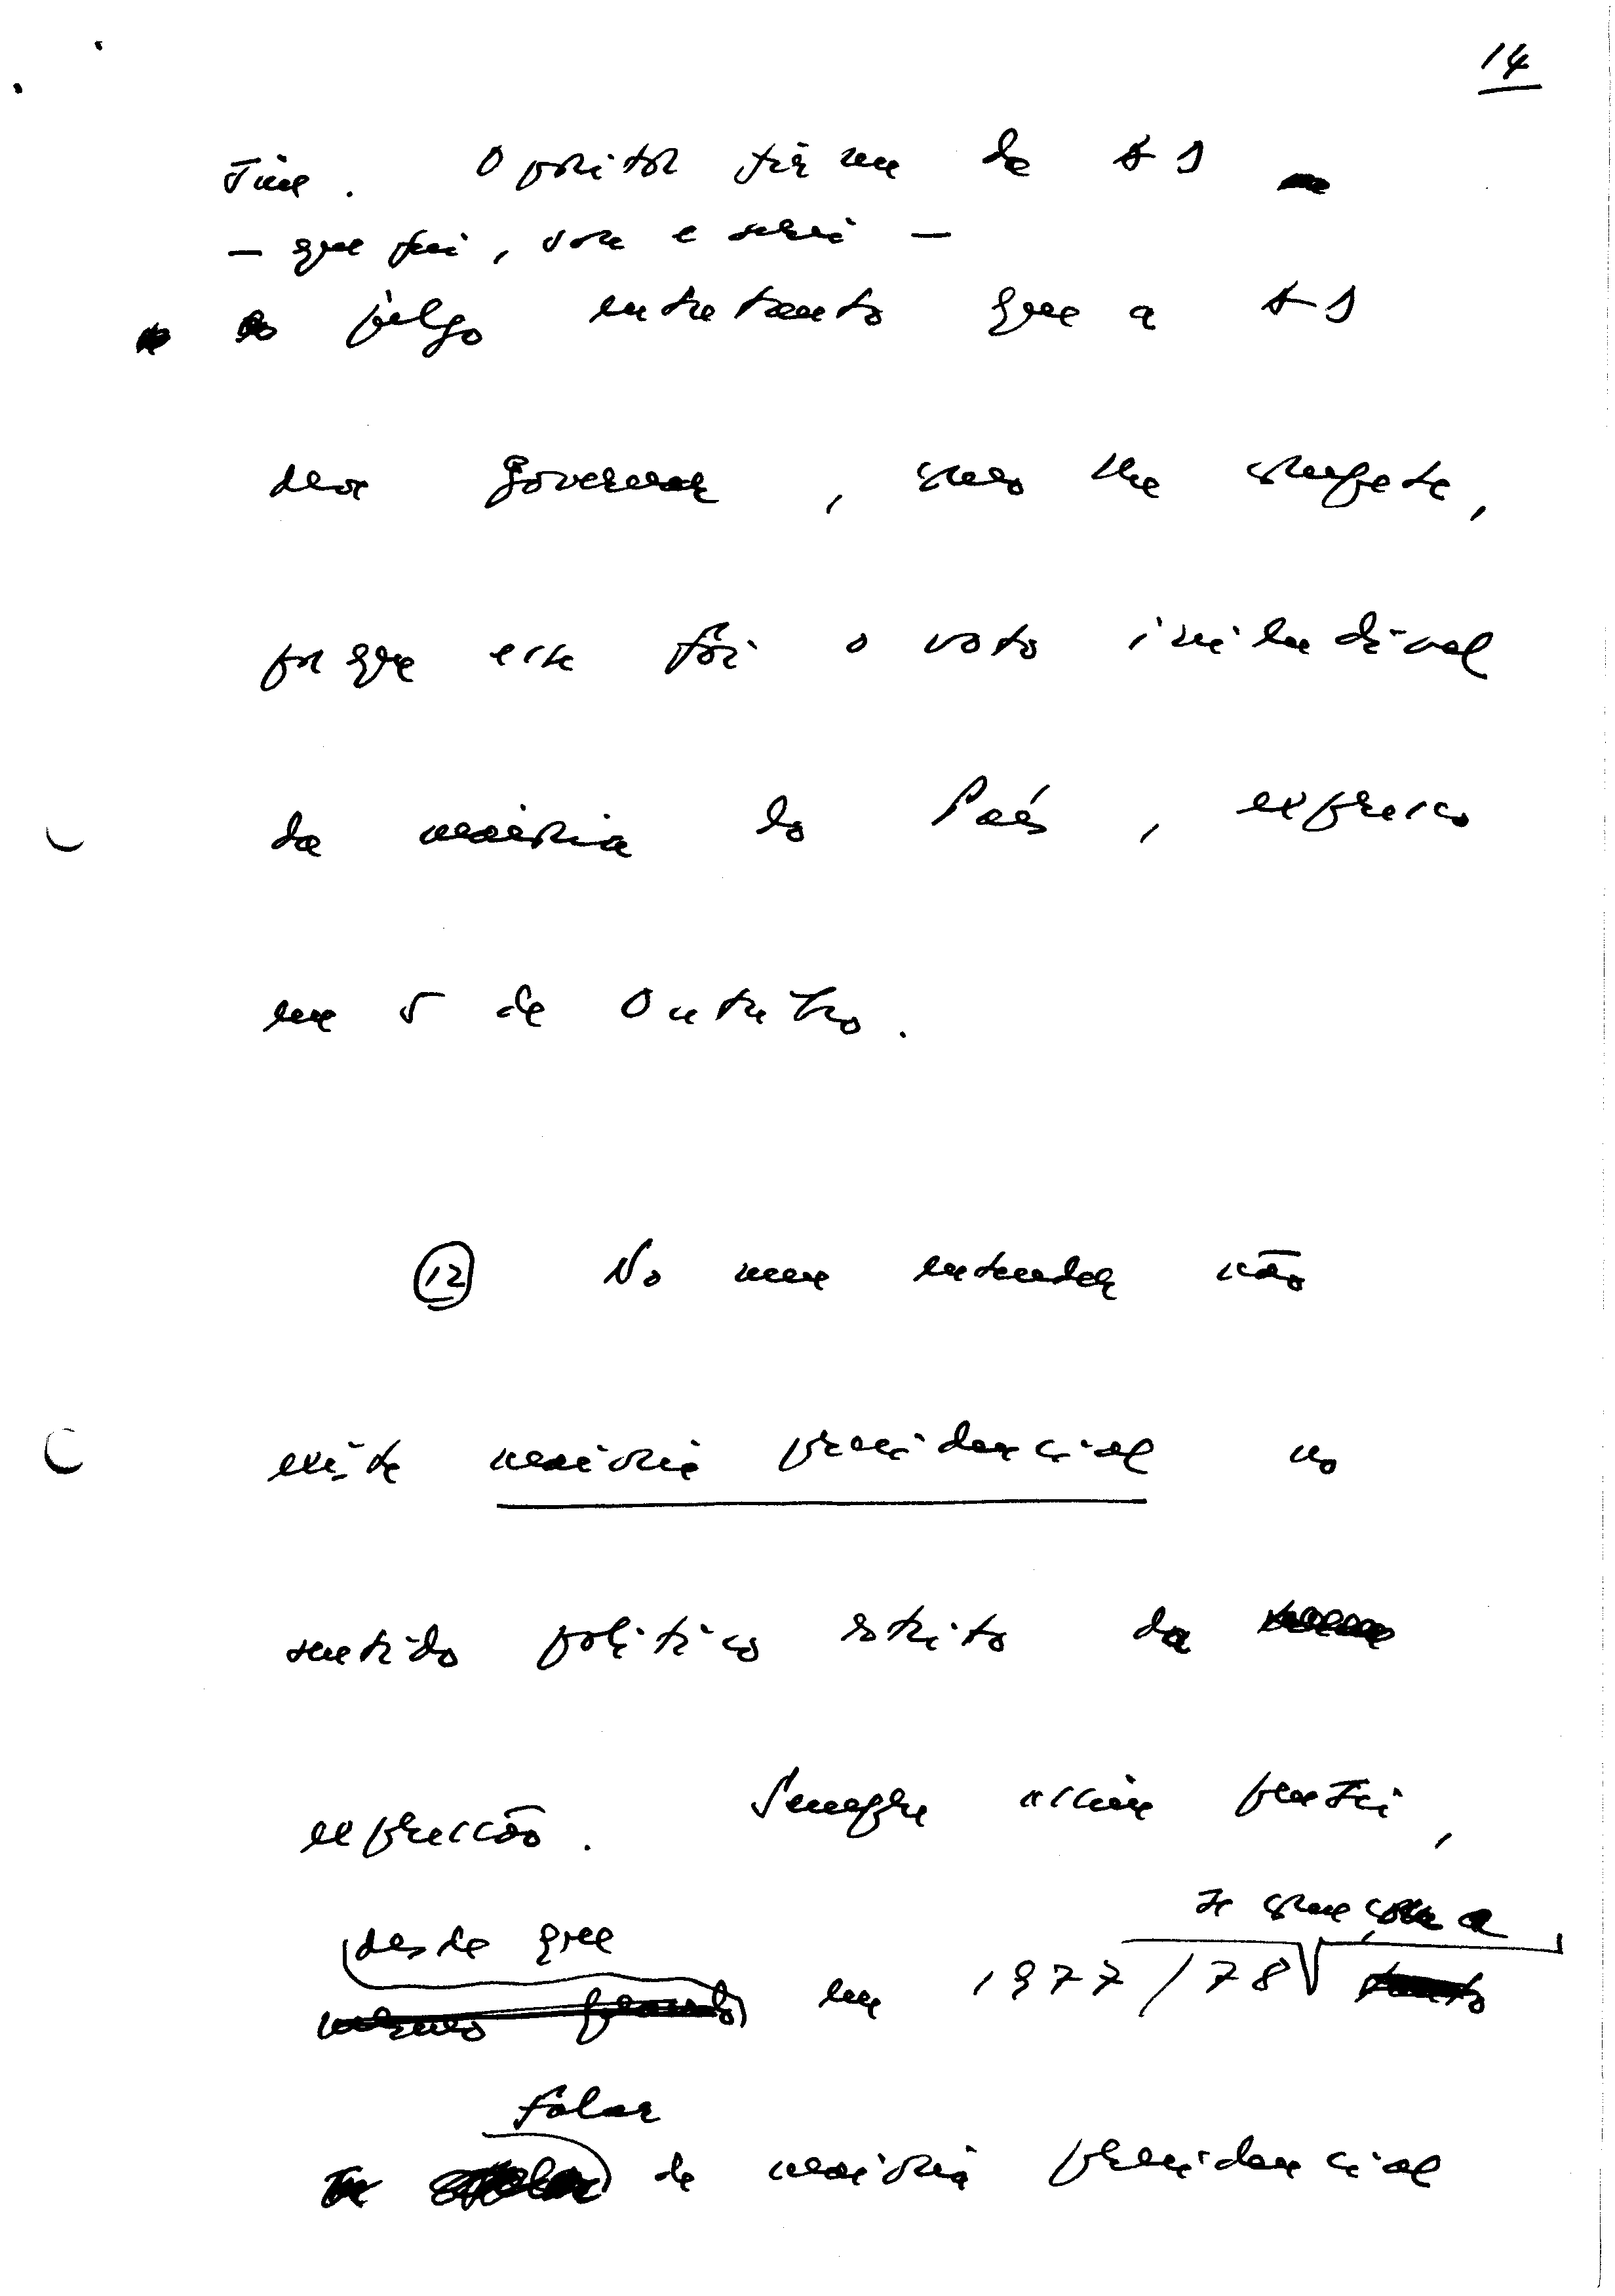 14
tive. Opositor firme da AD
— que fui, sou e serei —
julgo entretanto que a AD
deve governar, como lhe compete,
porque esse foi o voto iniludível
da maioria do País, expresso
em 5 de Outubro.
12 No meu entender não
existe maioria presidencial no
sentido político estrito da
expressão. Sempre assim pensei,
desde que
em 1977/78 se começou a
falar
de maioria presidencial